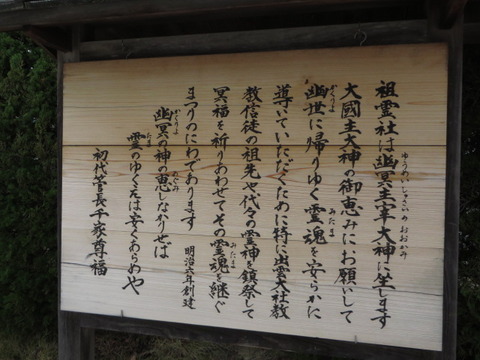 祖霊社は幽冥主宰大神に坐します
大國主大神の御恵みにお願いして
幽世に帰りゆく霊魂を安らかに
導いていただくために特に出雲大社教
教信徒の祖先や代々の霊神を鎮祭して
冥福を祈りあわせてその霊魂を継ぐ
まつりのにわであります
明治六年創建
幽冥の神の恵しなかりせば
霊のゆくたは安くあらめや
初代管長千家尊福